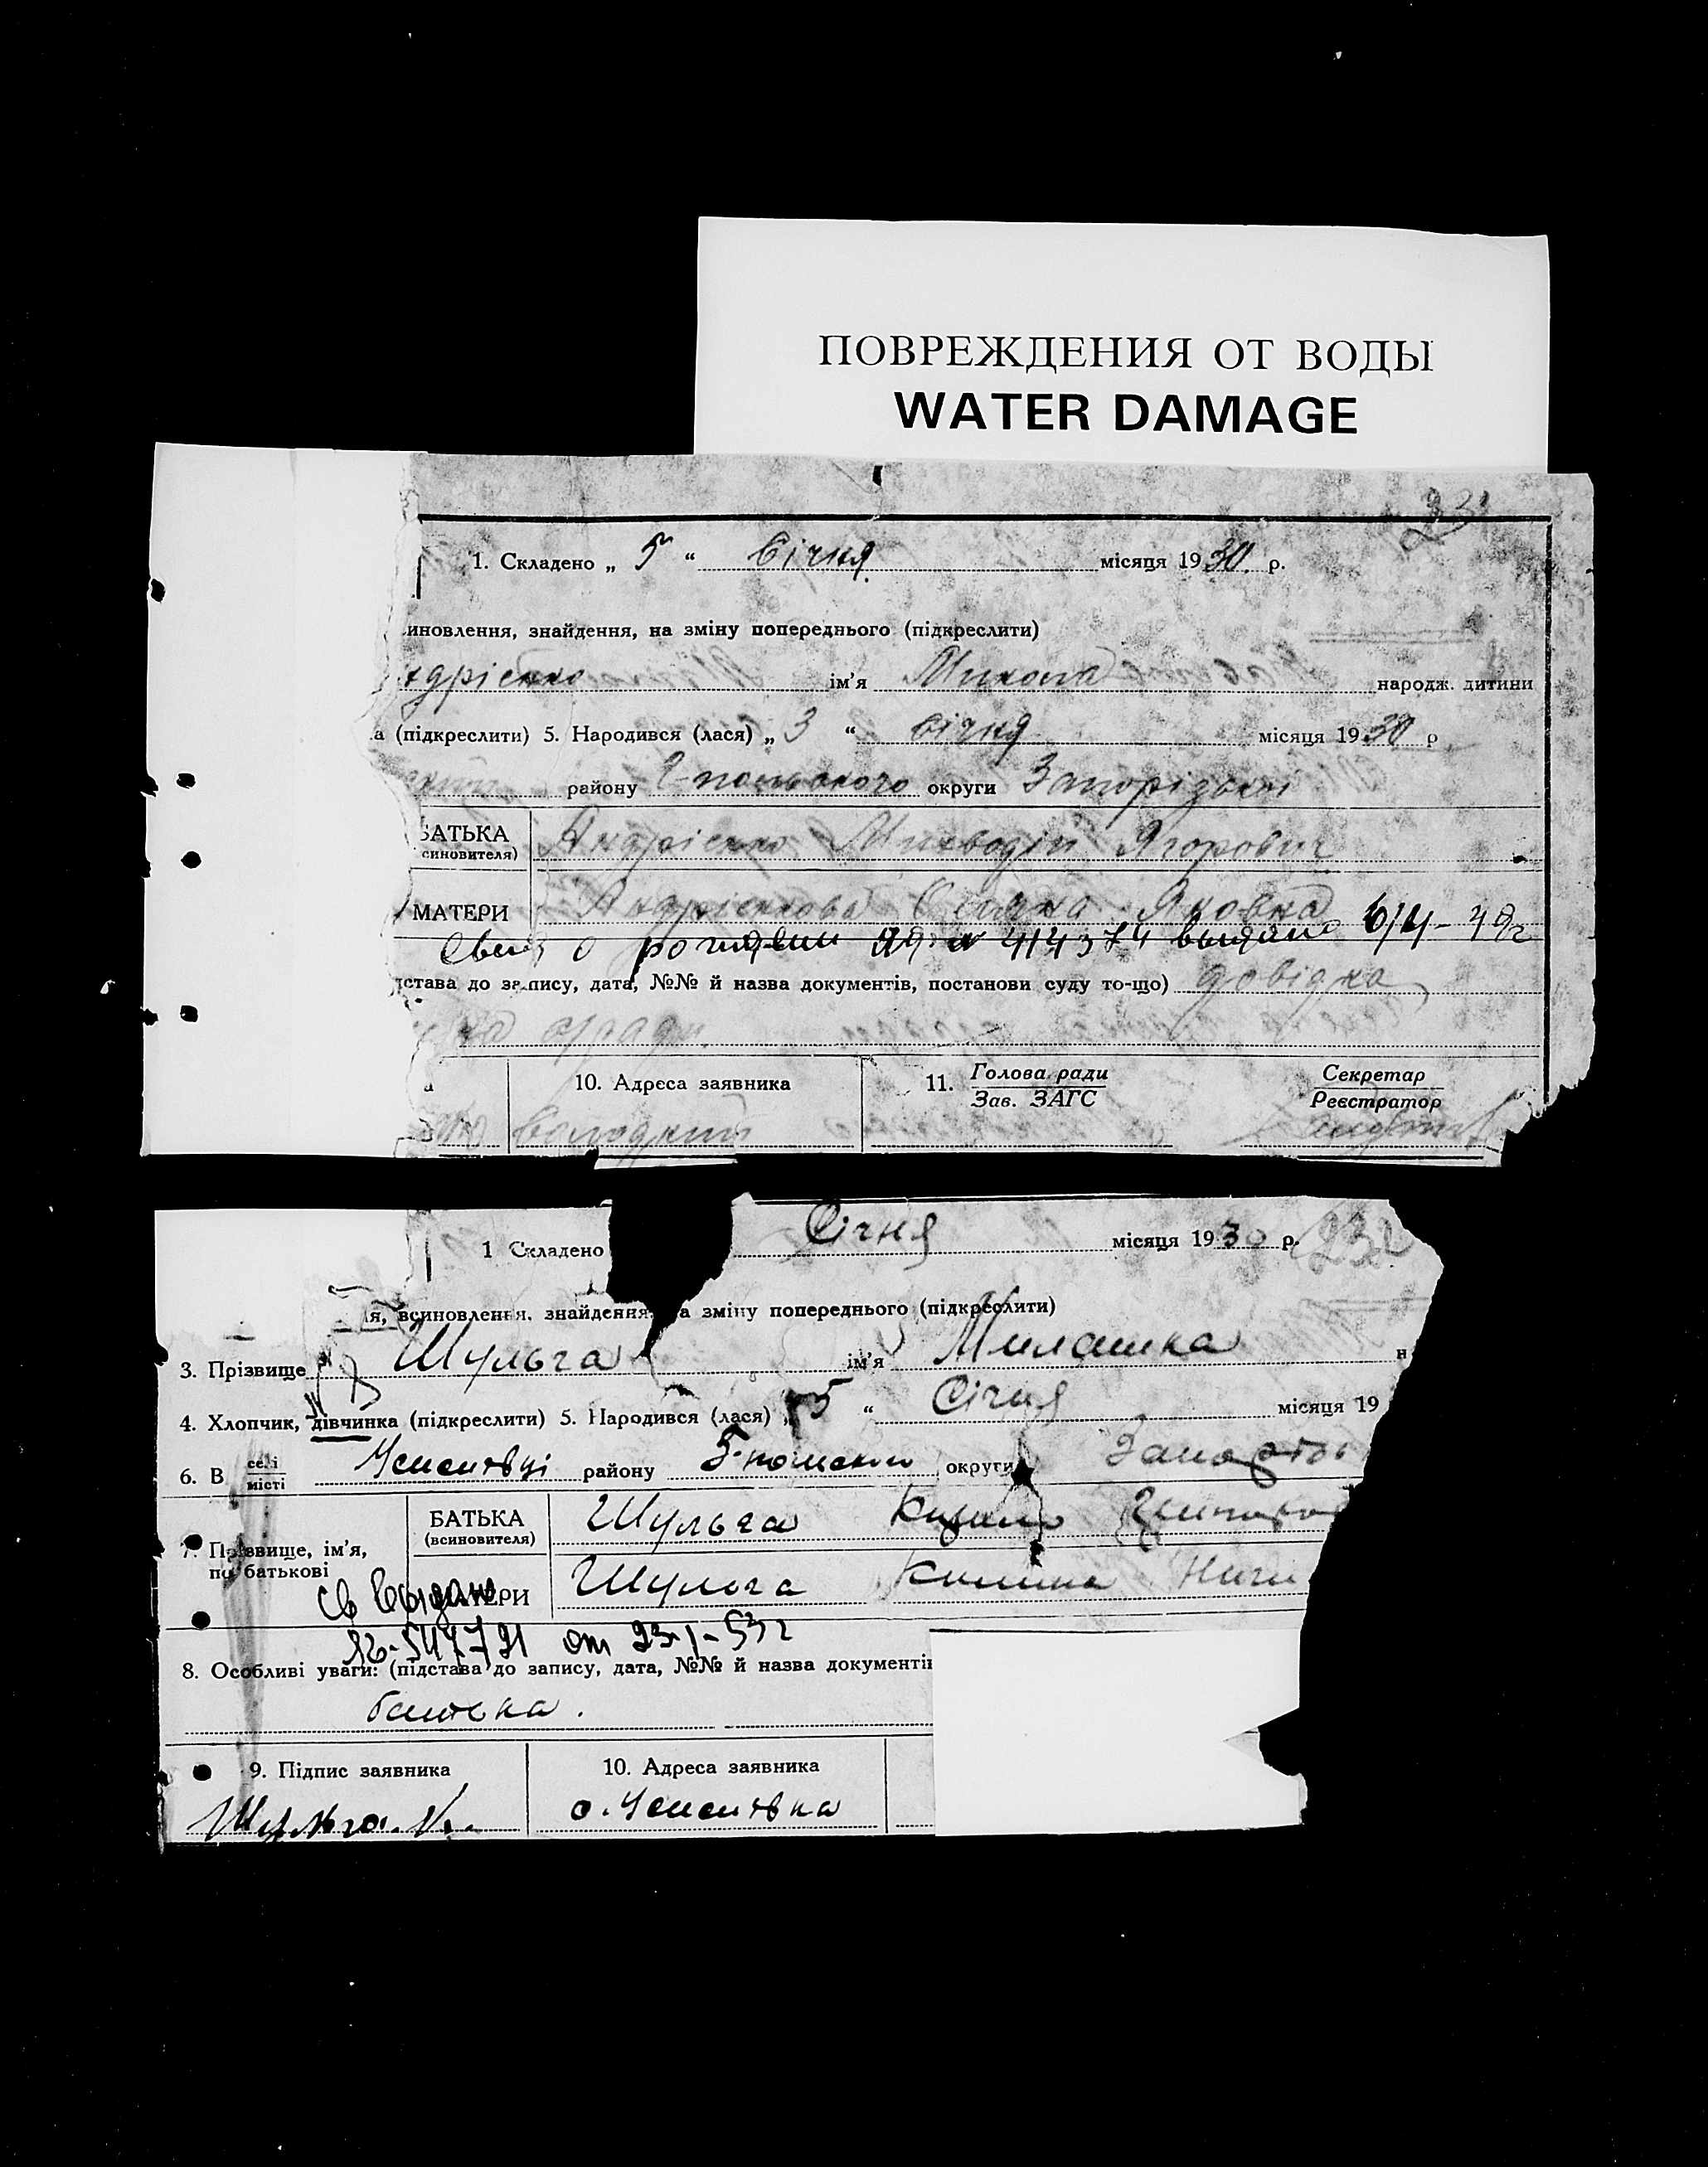 ПОВРЕЖДЕНИЯ ОТ ВОДЫ
WATER DAMAGE
1. Складено „ 5 “ Січня місяця 1930 р.
иновлення, знайдення, на зміну попереднього (підкреслити)
ндрієнко ім'я Микола народж. дитини
а (підкреслити) 5. Народився (лася) „ 3 “ січня місяця 1930 р
району округи Запорізької
БАТЬКА
синовителя)
Андрієнко Ягорович
МАТЕРИ Андрієнкова Яковна
о рождении ЯЯ № 414374 выдано 6/4-49г
дстава до запису, дата, №№ й назва документів, постанови суду то-що) довідка
10. Адреса заявника
11. Голова ради
Зав. ЗАГС
Секретар
Реєстратор
1 Складено Січня місяця 1930 р. 232
я, всиновлення, знайдення, а зміну попереднього (підкреслити)
3. Прізвище Шульга ім'я Милашка н
4. Хлопчик, дівчинка (підкреслити) 5. Народився (лася) „ 5 “ Січня місяця 19
6. В селі
місті
району округи
7. Прізвище, ім'я,
по батькові
БАТЬКА
(всиновителя)
Шульга
МАТЕРИ Шульга
св выдано
ЯБ-547791 от 23-I-53г
8. Особливі уваги: (підстава до запису, дата, №№ й назва документів
батька.
9. Підпис заявника
10. Адреса заявника
Шульга. К.